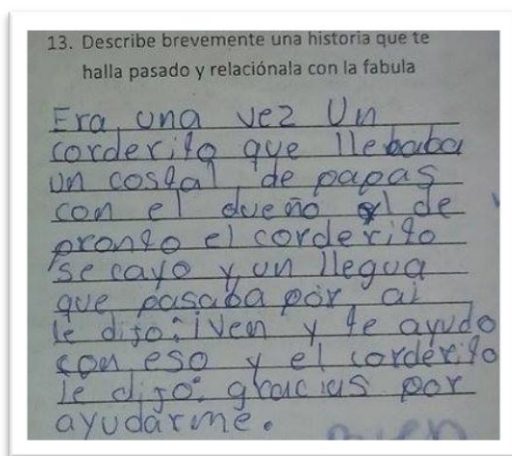 13. Describe brevemente una historia que te
halla pasado y relaciónala con la fabula
Era una vez Un
corderito que llebaba
un costal de papas
con el dueño de
pronto el corderito
se cayo y un llegua
que pasaba por ai
le dijo: ¡Ven y te ayudo
con eso y el corderito
le dijo: gracias por
ayudarme.
Bien